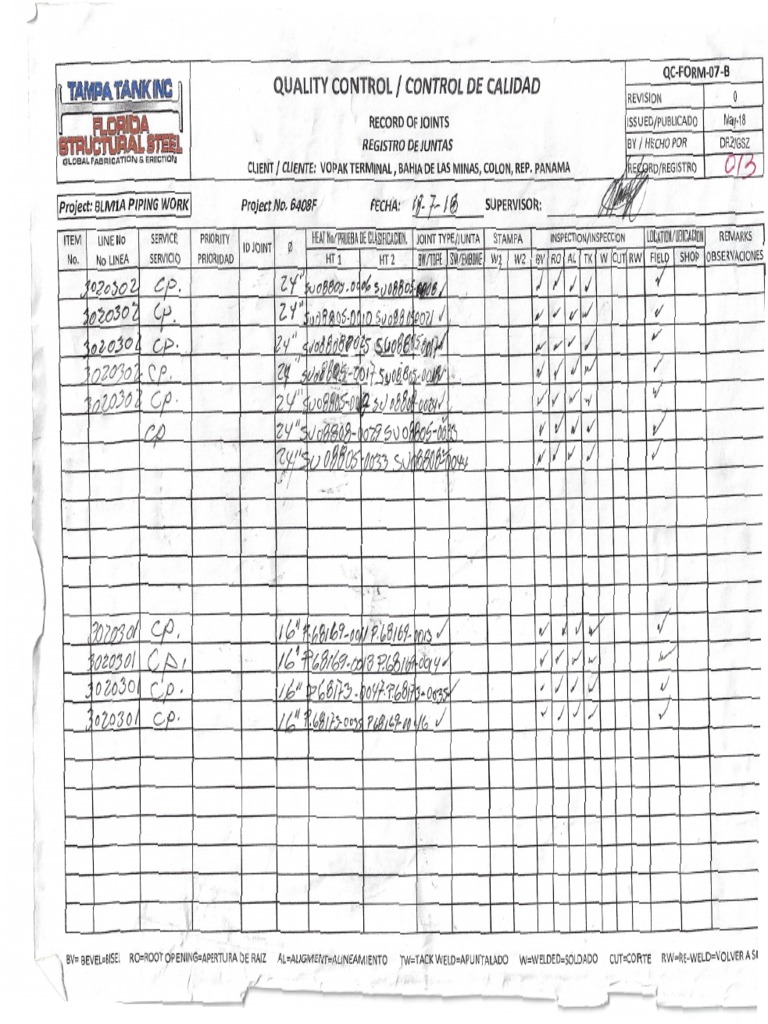 TAMPA TANK INC
FLORIDA
STRUCTURAL STEEL
GLOBAL FABRICATION & ERECTION
QUALITY CONTROL / CONTROL DE CALIDAD
RECORD OF JOINTS
REGISTRO DE JUNTAS
CLIENT / CLIENTE: VOPAK TERMINAL , BAHIA DE LAS MINAS, COLON, REP. PANAMA
QC-FORM-07-B
REVISION 0
ISSUED/PUBLICADO May-18
BY / HECHO POR
RECORD/REGISTRO 013
Project: BLM1A PIPING WORK Project No. 6408F FECHA: 18-7-18 SUPERVISOR:
ITEM LINE No SERVICE PRIORITY ID JOINT Ø HEAT No/PRUEBA DE CLASIFICACION. JOINT TYPE/JUNTA STAMPA INSPECTION/INSPECCION LOCATION/UBICACION REMARKS
No. No LINEA SERVICIO PRIORIDAD HT 1 HT 2 BW/TOPE SW/ENBONE W1 W2 BV RO AL TK W CUT RW FIELD SHOP OBSERVACIONES
3020302 CP. 24" SU08805-0006 SU08805- ✓ ✓ ✓ ✓ ✓
3020302 CP. 24" SU08805-0010 SU08050021 ✓ ✓ ✓ ✓ ✓ ✓
3020302 CP. 24" ✓ ✓ ✓ ✓ ✓
3020302 CP. 24" ✓ ✓ ✓ ✓ ✓
3020302 CP. 24" ✓ ✓ ✓ ✓ ✓
CP 24" SU08808-0029 SU08805-0033 ✓ ✓ ✓ ✓ ✓
24" SU08805-0033 ✓ ✓ ✓ ✓ ✓
3020301 CP. 16" P.68169-0011 P.68169-0013 ✓ ✓ ✓ ✓ ✓ ✓
3020301 CP. 16" P68169-0018 P.68169-0014 ✓ ✓ ✓ ✓ ✓ ✓
3020301 CP. 16" P68173-0047 P.68173-0035 ✓ ✓ ✓ ✓ ✓ ✓
3020301 CP. 16" P.68173-0035 P.68169-0016 ✓ ✓ ✓ ✓ ✓ ✓
BV= BEVEL=BISEL RO=ROOT OPENING=APERTURA DE RAIZ AL=AUGMENT=ALINEAMIENTO TW=TACK WELD=APUNTALADO W=WELDED=SOLDADO CUT=CORTE RW=RE-WELD=VOLVER A S